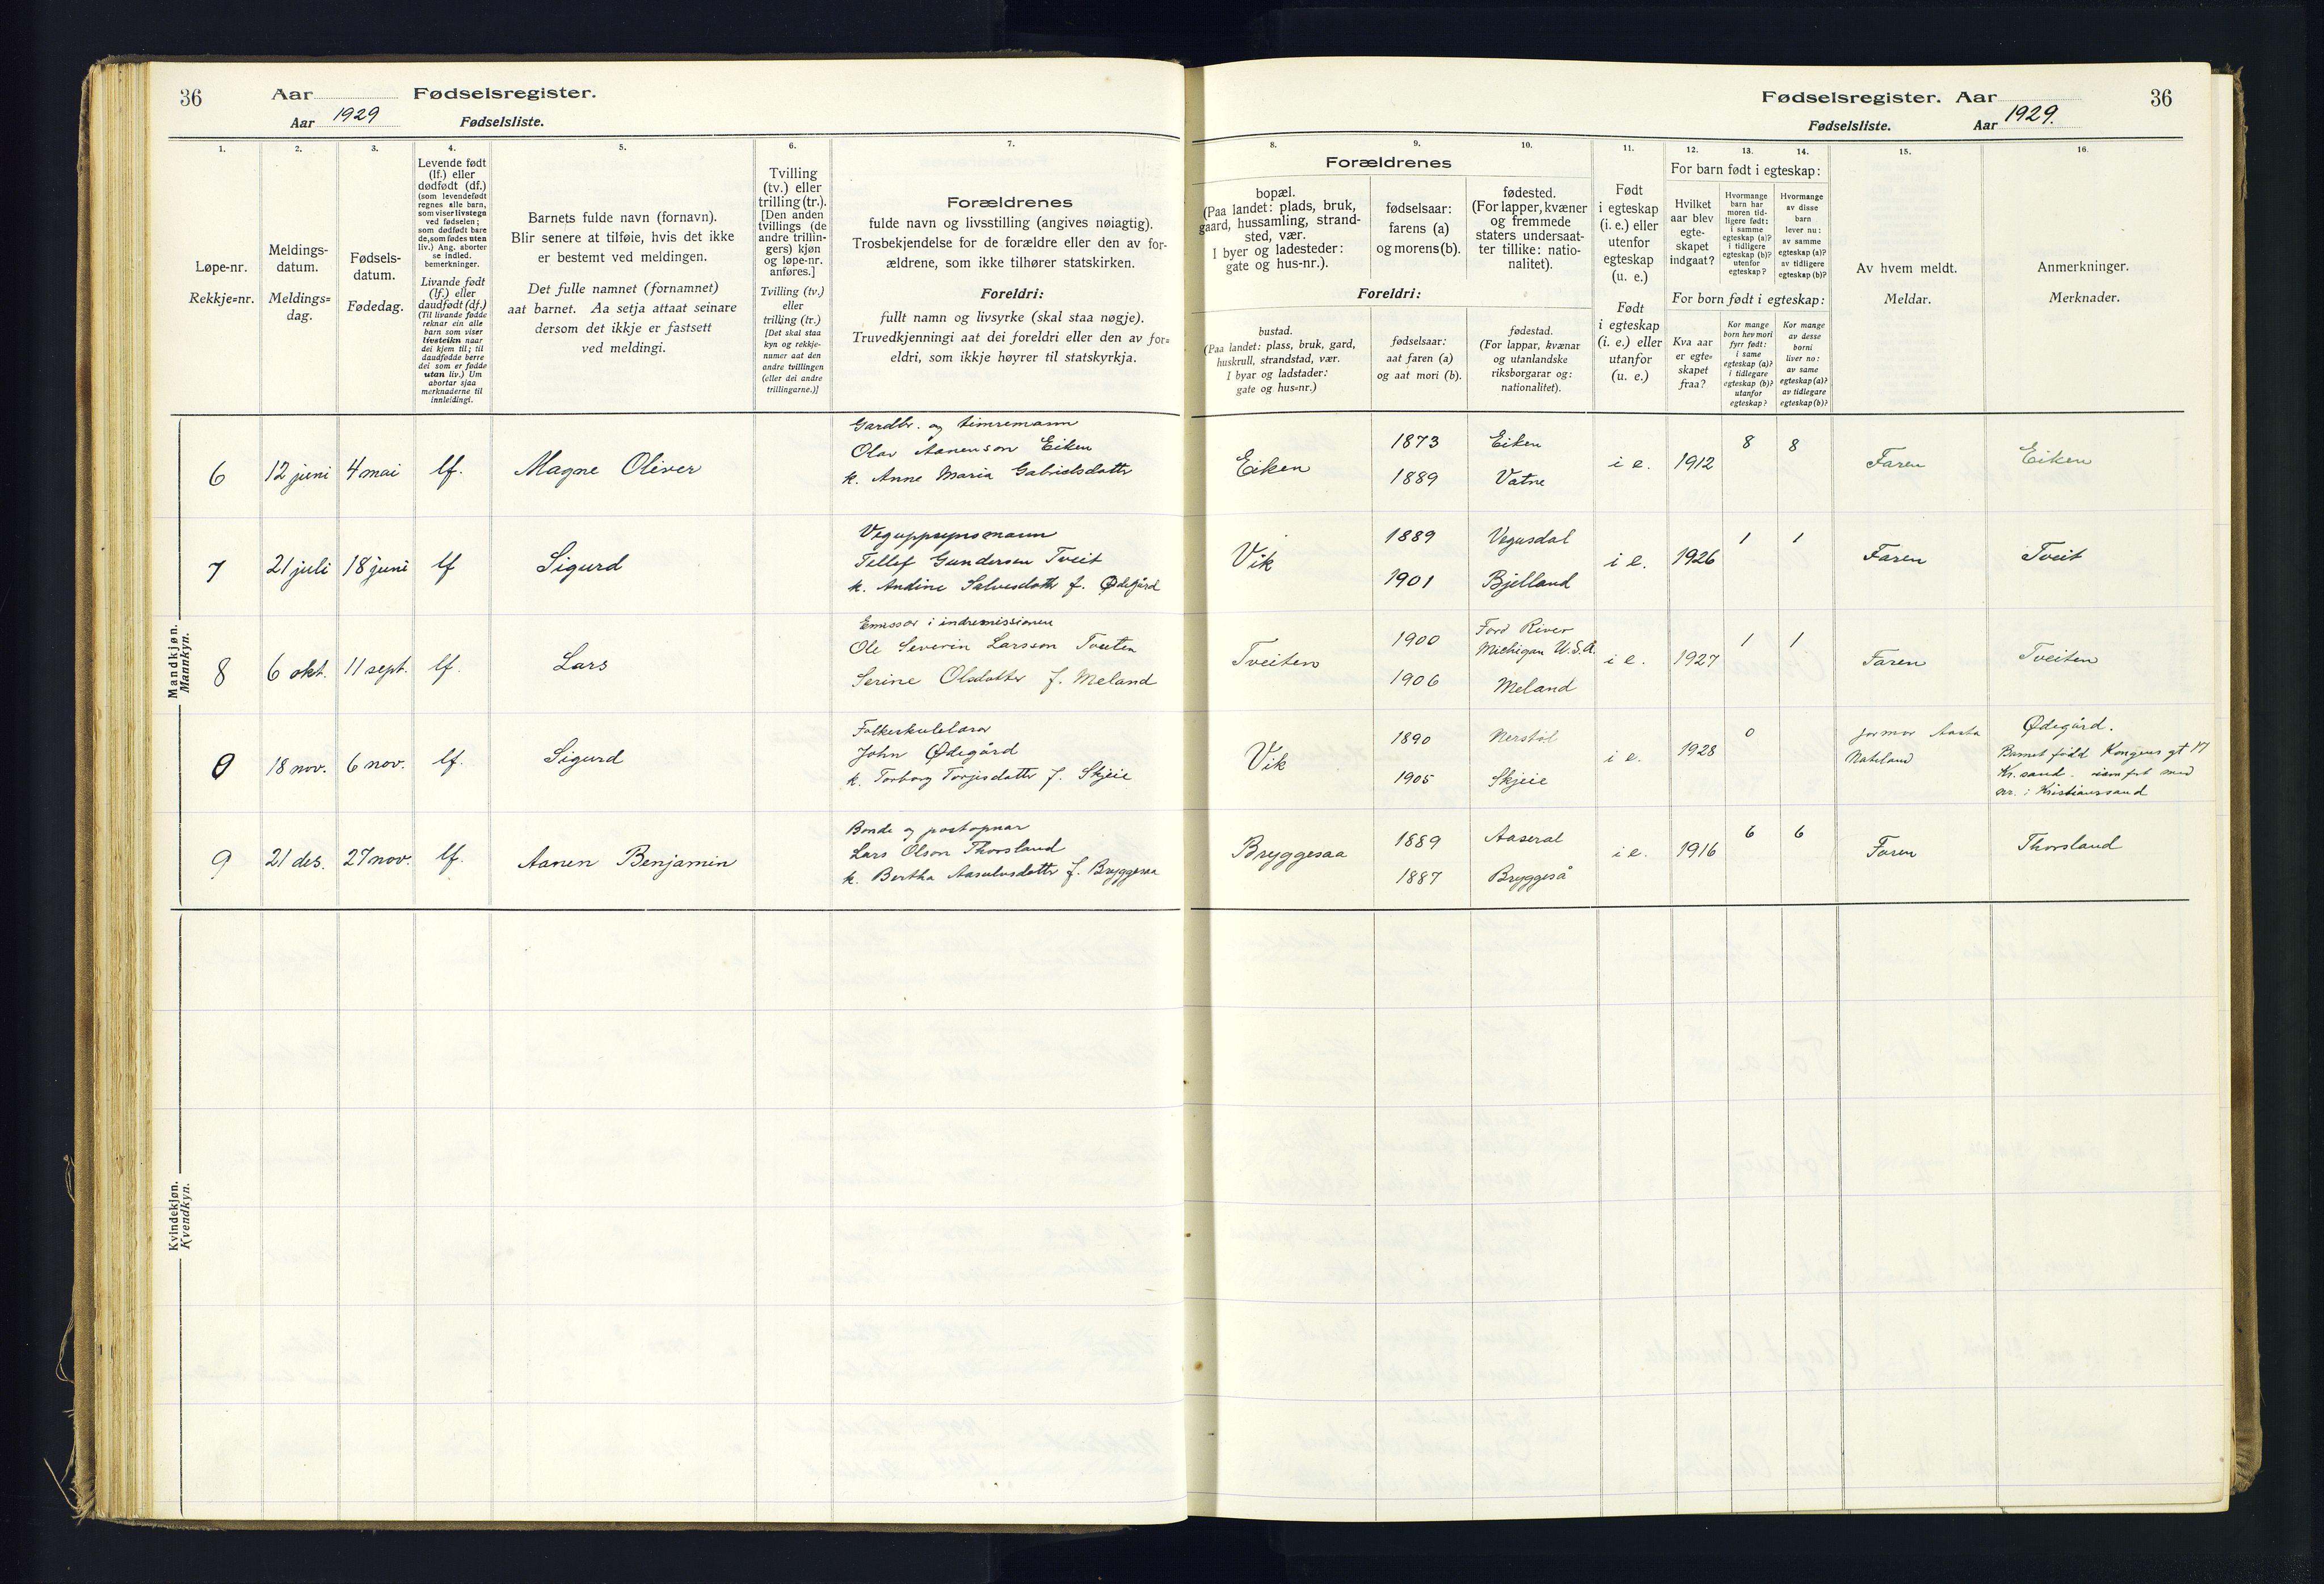 36
Aar
Fødselsregister.
Aar 1929
Fødselsliste.
1.
2.
3.
4.
5.
6.
7.
Løpe-nr.
Rekkje=nr.
Meldings-
datum.
Meldings=
dag.
Fødsels-
datum.
Fødedag.
Levende født
(lf.) eller
dødfødt (df.)
(som levendefødt
regnes alle barn,
som viser livstegn
ved fødselen;
som dødfødt bare
de, som fødes uten
liv.) Ang. aborter
se indled.
bemerkninger.
Livande født
(lf.) eller
daudfødt (df.)
(Til livande fødde
reknar ein alle
barn som viser
livsteikn naar
dei kjem til; til
daudfødde berre
dei som er fødde
utan liv.) Um
abortar sjaa
merknaderne til
innleidingi.
Barnets fulde navn (fornavn).
Blir senere at tilføie, hvis det ikke
er bestemt ved meldingen.
Det fulle namnet (fornamnet)
aat barnet. Aa setja attaat seinare
dersom det ikkje er fastsett
ved meldingi.
Tvilling
(tv.) eller
trilling (tr.).
[Den anden
tvillings (de
andre trillin-
gers) kjøn
og løpe-nr.
anføres.]
Tvilling (tv.)
eller
trilling (tr.)
[Det skal staa
kyn og rekkje-
numer aat den
andre tvillingen
(eller dei andre
trillingarne.)]
Forældrenes
fulde navn og livsstilling (angives nøiagtig).
Trosbekjendelse for de forældre eller den av for-
ældrene, som ikke tilhører statskirken.
Foreldri:
fullt namn og livsyrke (skal staa nøgje).
Truvedkjenningi aat dei foreldri eller den av for=
eldri, som ikkje høyrer til statskyrkja.
Mandkjøn.
Mannkyn.
6 12 juni 4 mai lf. Magne Oliver
Gardbr. og timremann
Olav Aanenson Eiken
k. Anne Maria Gabrielsdattr
7 21 juli 18 juni lf Sigurd
Veguppsynsmann
Tellef Gundersen Tveit
k. Andine Salvesdattr f. Ødegård
8 6 okt. 11 sept. lf. Lars
Emissær i indremissionen
Ole Severin Larsson Tveiten
Serine Olsdatter f. Meland
0 18 nov. 6 nov. lf. Sigurd
Folkeskulelærar
John Ødegård
k. Torborg Torjusdattr f. Skjeie
9 21 des. 27 nov. lf. Aanen Benjamin
Bonde og postopnar
Lars Olson Thorsland
k. Bertha Aasulvsdattr f. Bryggesaa
Kvindekjøn.
Kvendkyn.
Fødselsregister. Aar
36
Fødselsliste.
Aar 1929.
8.
9.
10.
11.
12.
13.
14.
15.
16.
Forældrenes
bopæl.
(Paa landet: plads, bruk,
gaard, hussamling, strand-
sted, vær.
I byer og ladesteder:
gate og hus-nr.).
fødselsaar:
farens (a)
og morens (b).
fødested.
(For lapper, kvæner
og fremmede
staters undersaat-
ter tillike: natio-
nalitet).
Foreldri:
bustad.
(Paa landet: plass, bruk, gard,
huskrull, strandstad, vær.
I byar og ladstader:
gate og hus=nr.)
fødselsaar:
aat faren (a)
og aat mori (b).
fødestad.
(For lappar, kvænar
og utanlandske
riksborgarar og:
nationalitet).
Født
i egteskap
(i. e.) eller
utenfor
egteskap
(u. e.)
Født
i egteskap
(i. e.) eller
utanfor
(u. e.)
For barn født i egteskap:
Hvilket
aar blev
egte-
skapet
indgaat?
Hvormange
barn har
moren tid-
ligere født:
i samme
egteskap (a)?
i tidligere
egteskap (b)?
utenfor
egteskap?
Hvormange
av disse
barn
lever nu:
av samme
egteskap (a)?
av tidligere
egteskap (b)?
For born født i egteskap:
Kva aar
er egte=
skapet
fraa?
Kor mange
born hev mori
fyrr født:
i same
egteskap (a)?
i tidlegare
egteskap (b)?
utanfor
egteskap?
Kor mange
av desse
borni
liver no:
av same
egteskap (a)?
av tidlegare
egteskap (b)?
Av hvem meldt.
Meldar.
Anmerkninger.
Merknader.
Eiken 1873 Eiken
1889 Vatne
i e. 1912 8 8 Faren Eiken
Vik 1889 Vegusdal
1901 Bjelland
i e. 1926 1 1 Faren Tveit
Tveiten 1900 Ford River
Michigan U.S.A.
1906 Meland
i e. 1927 1 1 Faren Tveiten
Vik 1890
1905 Skjeie
i e. 1928 0
Aasta
Ødegård.
Barnet född Kongens gt 17
Kr.sand.
nr. i Kristianssand
Bryggesaa 1889 Aaseral
1887 Bryggeså
i e. 1916 6 6 Faren Thorsland